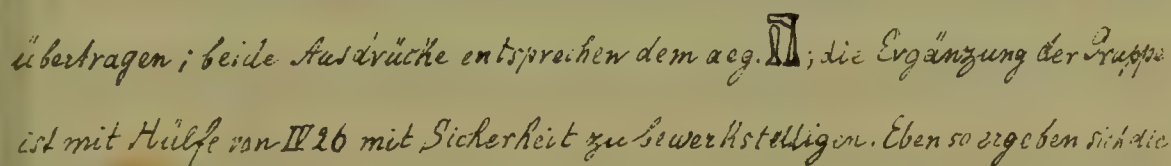 übertragen; beide Ausdrücke entsprechen dem aeg. ; die Ergänzung der Gruppe
ist mit Hülfe von IV 26 mit Sicherheit zu bewerkstelligen. Ebenso ergeben sich die